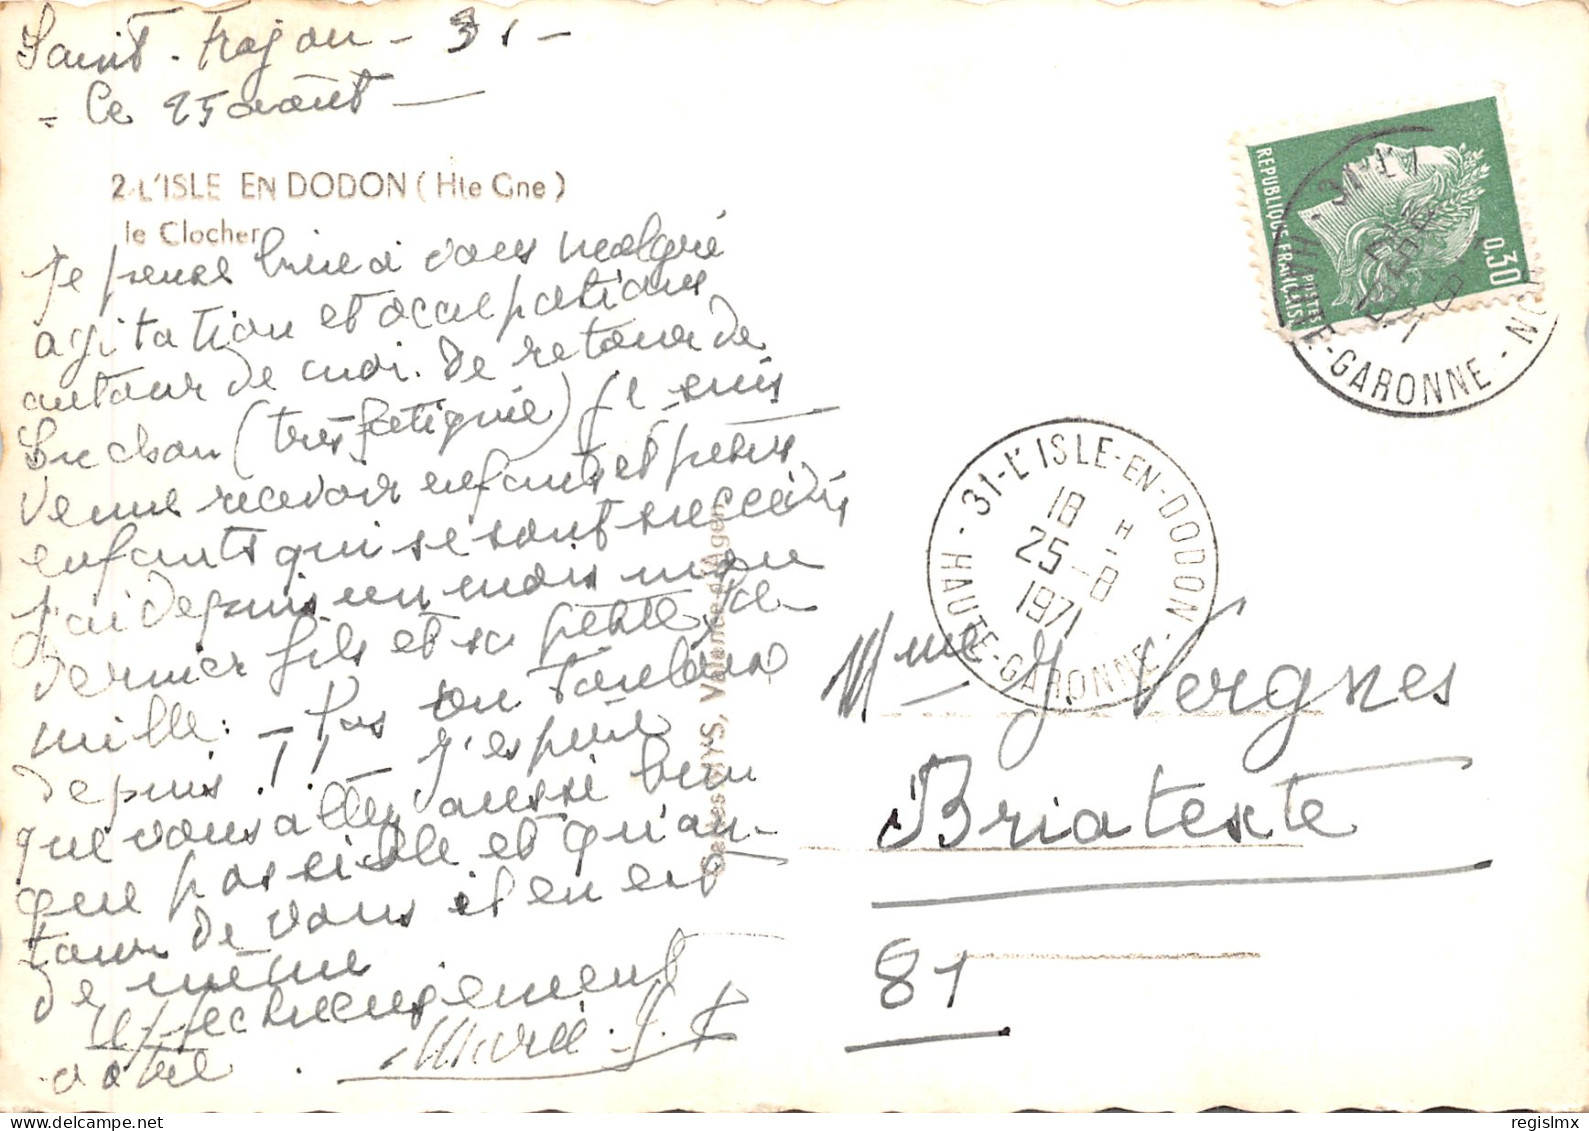 Saint-Frajou - 31 -
- Ce 25 août -
2-L'ISLE EN DODON (Hte Gne)
le Clocher
Je pense bien à vous malgré
agitation et occupations
autour de moi. De retour de
Luchon (très fatiguée) je suis
venue recevoir enfants et petits
enfants qui se sont succédés
J'ai depuis un mois mon
dernier fils et sa petite fa-
mille :
depuis .!! J'espère
que vous allez aussi bien
que possible et qu'au-
tour de vous il en est
de même
Affectueusement
vôtre. Marie. J.
Cartes NYS, Valence d'Agen
REPUBLIQUE FRANÇAISE
POSTES
0,30
HAUTE-GARONNE -
31-L'ISLE-EN-DODON - HAUTE-GARONNE -
18 H
25-8
1971
Mme J. Vergnes
Briatexte
81
regislmx